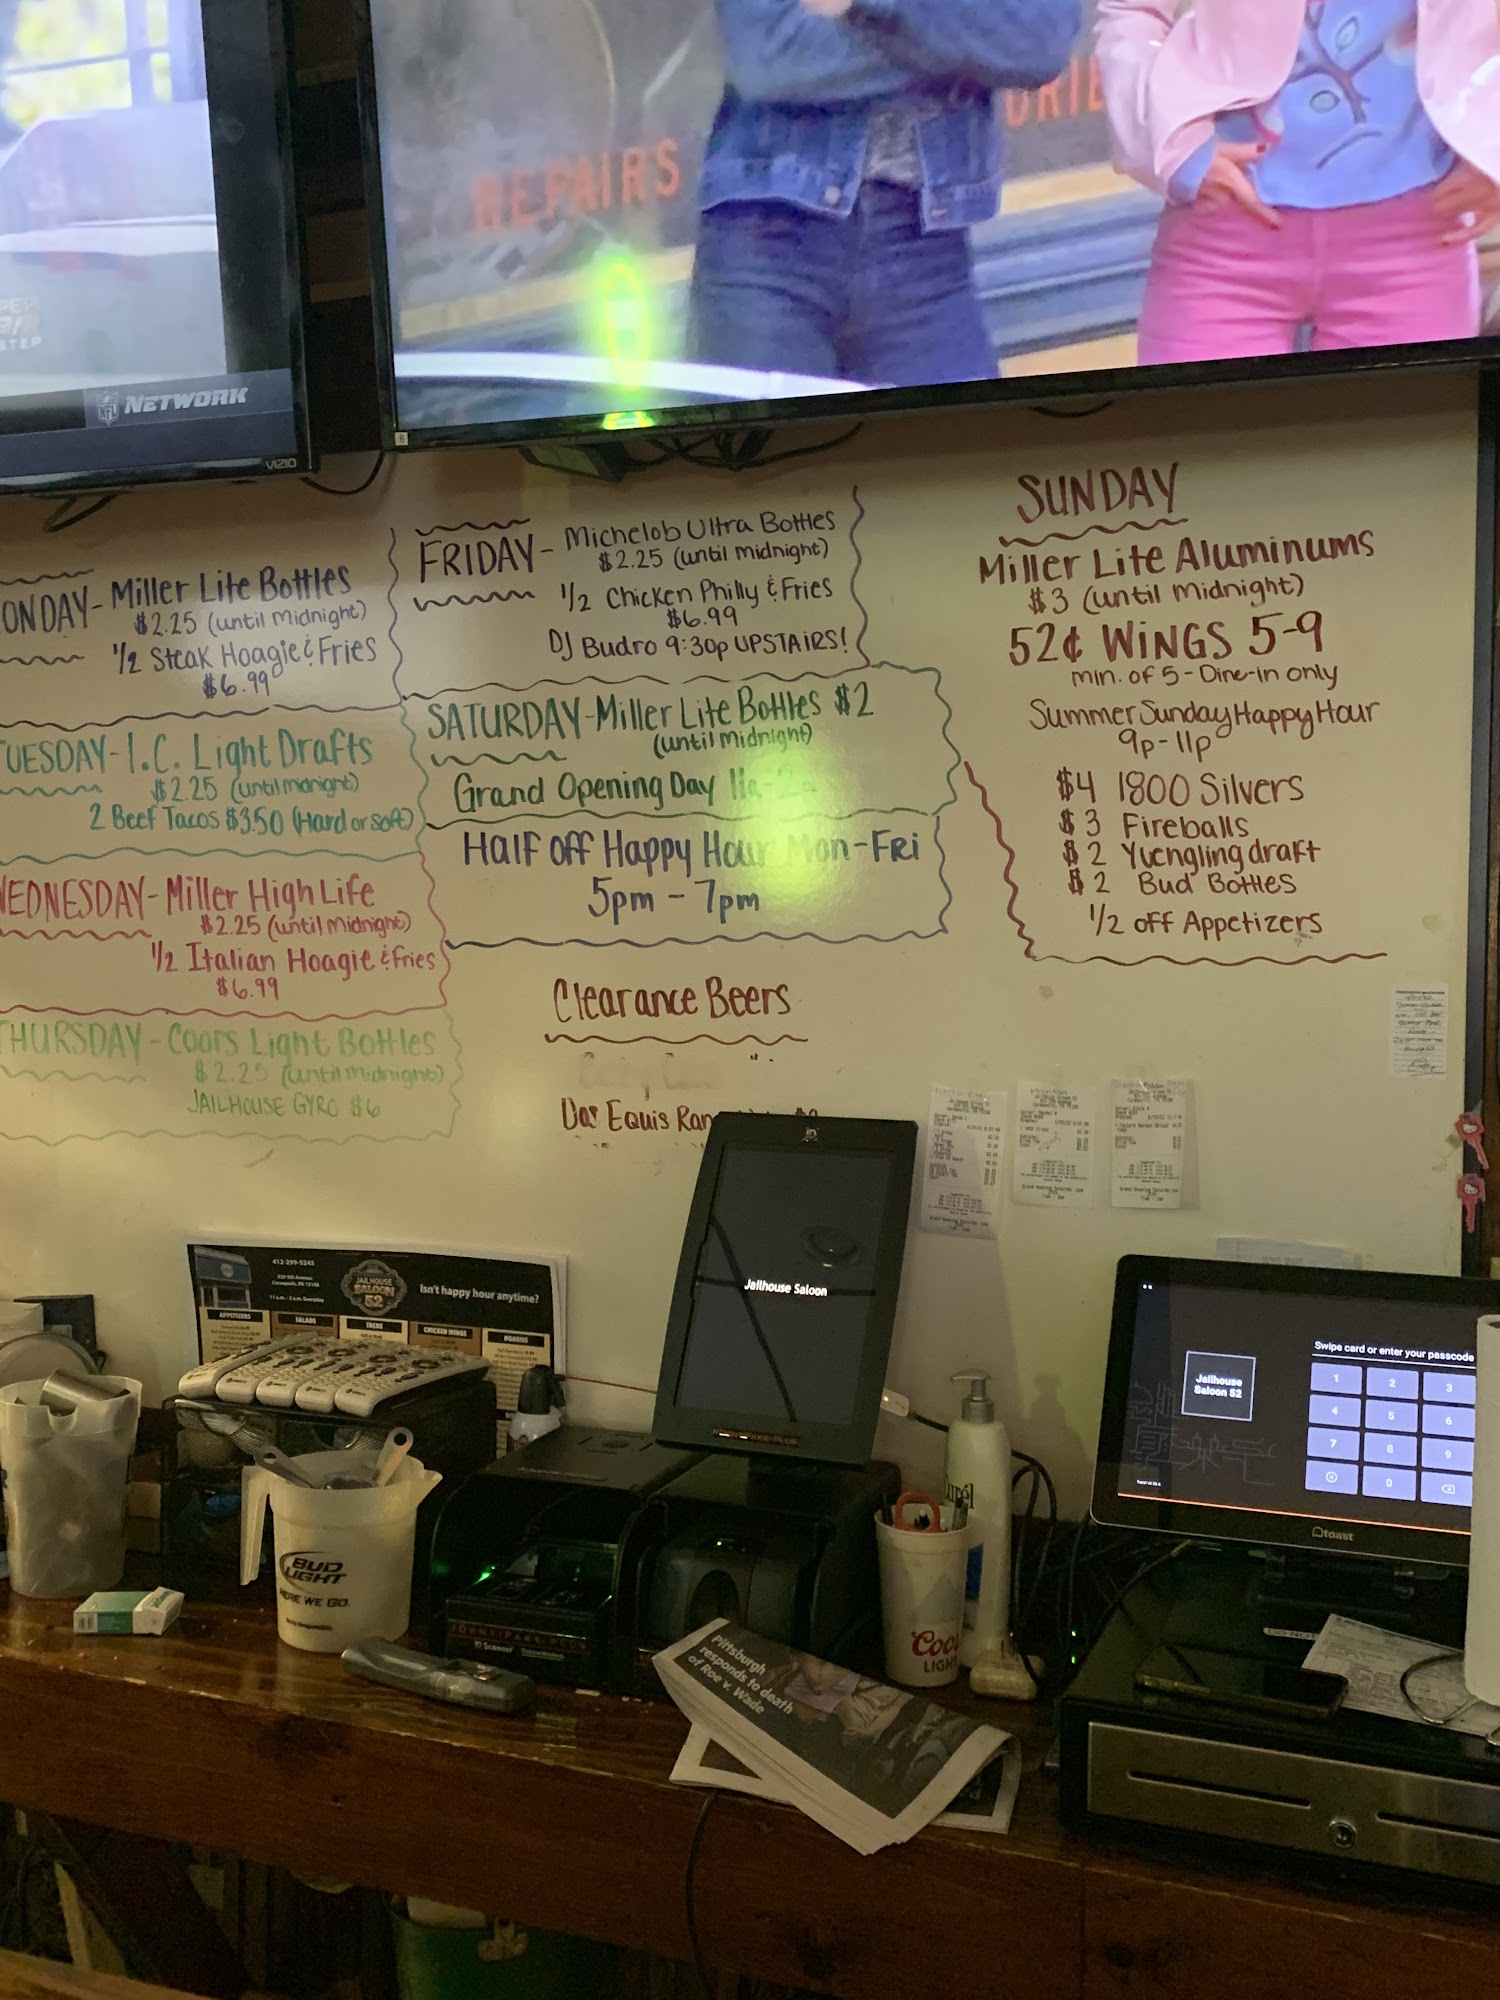 REPAIRS
NFL NETWORK
VIZIO
ONDAY - Miller Lite Bottles
$2.25 (until midnight)
1/2 Steak Hoagie & Fries
$6.99
TUESDAY - I.C. Light Drafts
$2.25 (until midnight)
2 Beef Tacos $3.50 (Hard or soft)
WEDNESDAY - Miller High Life
$2.25 (until midnight)
1/2 Italian Hoagie & Fries
$6.99
THURSDAY - Coors Light Bottles
$2.25 (until midnight)
JAILHOUSE GYRO $6
FRIDAY - Michelob Ultra Bottles
$2.25 (until midnight)
1/2 Chicken Philly & Fries
$6.99
DJ Budro 9:30p UPSTAIRS!
SATURDAY - Miller Lite Bottles $2
(until midnight)
Grand Opening Day 11a-2a
Half off Happy Hour Mon-Fri
5pm - 7pm
Clearance Beers
Dos Equis Ran
SUNDAY
Miller Lite Aluminums
$3 (until midnight)
52¢ WINGS 5-9
min. of 5 - Dine-in only
Summer Sunday Happy Hour
9p-11p
$4 1800 Silvers
$3 Fireballs
$2 Yuengling draft
$2 Bud Bottles
1/2 off Appetizers
412-299-5245
JAILHOUSE
SALOON
52
Isn't happy hour anytime?
APPETIZERS
SALADS
TACOS
CHICKEN WINGS
HOAGIES
Jailhouse Saloon
Swipe card or enter your passcode
Jailhouse
Saloon 52
1 2 3
4 5 6
7 8 9
0
toast
BUD
LIGHT
HERE WE GO.
IDENTIFAKE-PLUS
ID Scanner
Coo
LIGH
Pittsburgh
responds to death
of Roe v. Wade
DO NOT